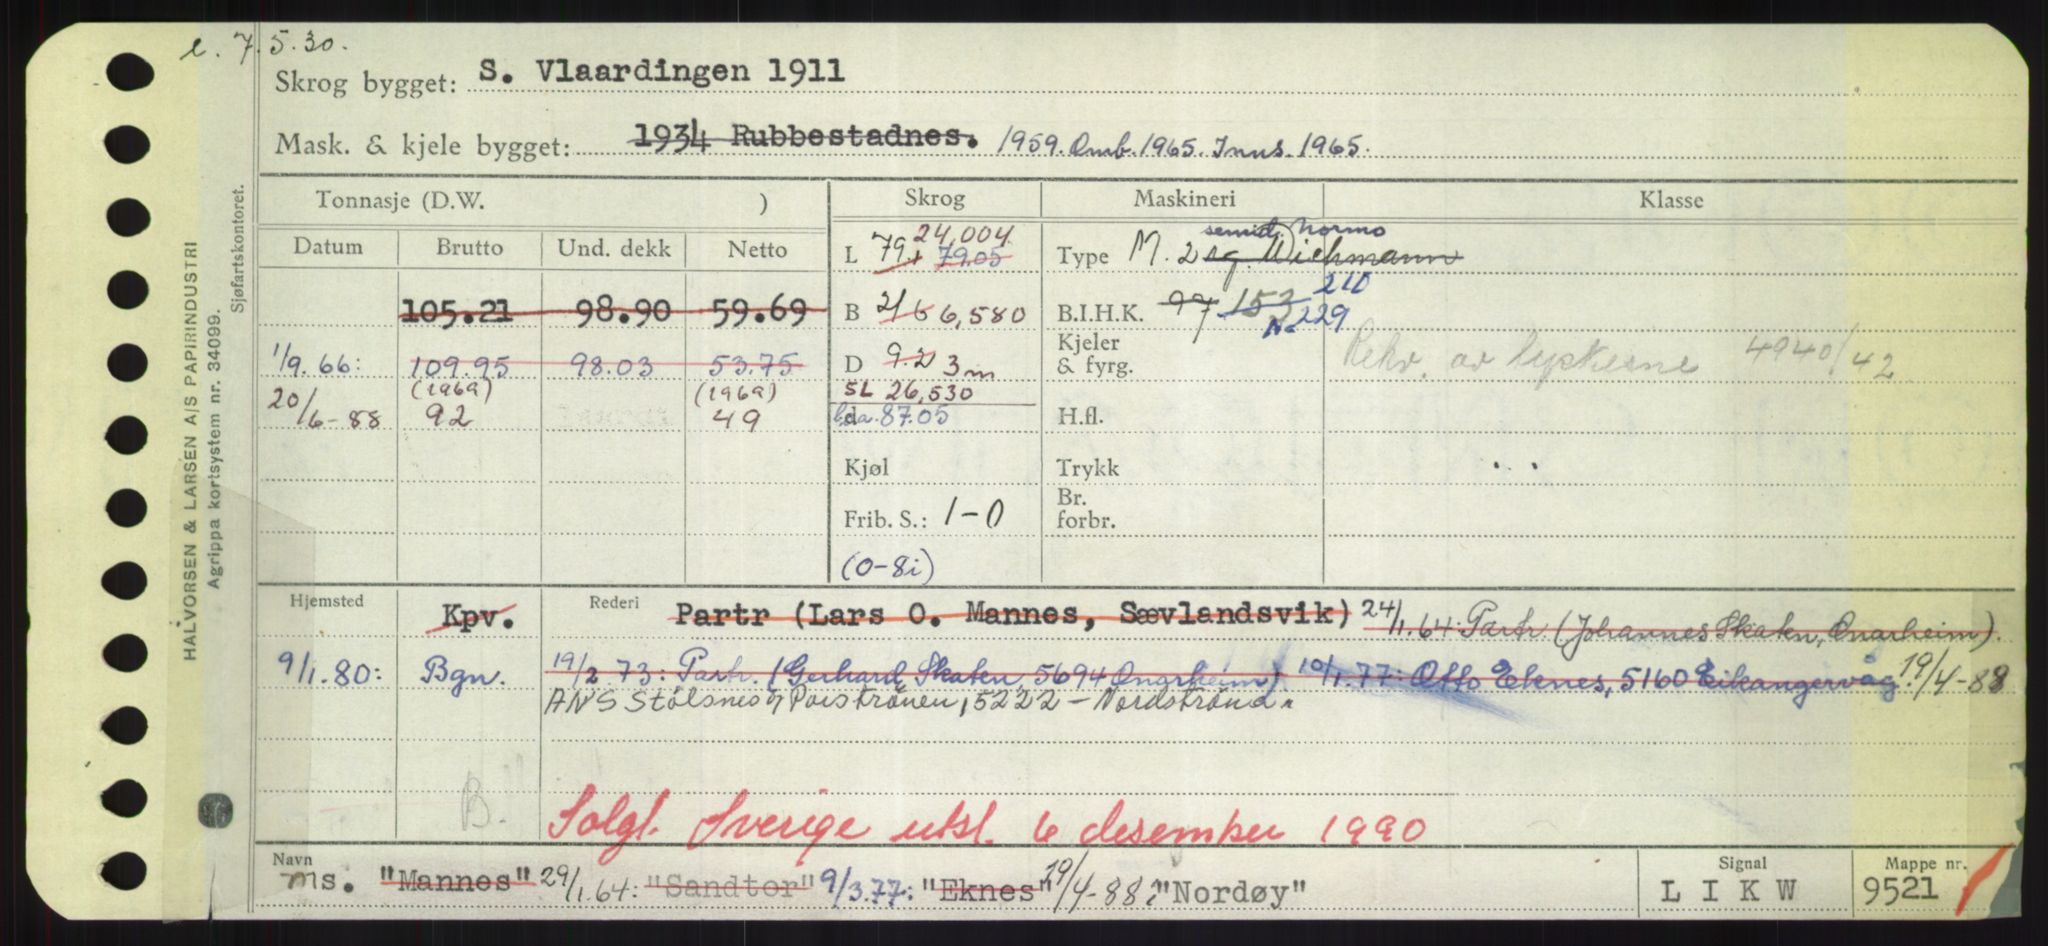 e. 7.5.30.
Skrog bygget: S. Vlaardingen 1911
Mask. & kjele bygget: 1934 Rubbestadnes. 1959. Omb. 1965. Inns. 1965.
Tonnasje (D.W. ) Skrog Maskineri Klasse
Datum Brutto Und. dekk Netto
L 79.1 79.05 24,004 Type M. 2 sg. Wichmann semid. Normo
105.21 98.90 59.69 B 21.6 6,580 B.I.H.K. 97 153 210
N. 229
1/9.66: 109.95 98.03 53.75 D 9.2 3m Kjeler & fyrg. 4940/42
20/6-88 (1969) 92 (1969) 49 SL 26,530
loa. 87.05 H.fl.
Kjøl Trykk
Frib. S.: 1-0 Br. forbr.
(0-8i)
Hjemsted Kpv. Rederi Partr (Lars O. Mannes, Sævlandsvik) 24/1.64: Partr. (Johannes Skaten, Onarheim).
9/1.80: Bgn. 19/2.73: Partr. (Gerhard Skaten 5694 Onarheim) 10/1.77: Otto Eknes, 5160 Eikangervåg 19/4-88
ANS Stølsnes, 5222 - Nordstrøna.
B.
Solgt. Sverige utsl. 6 desember 1990
Navn Signal Mappe nr.
ms. "Mannes" 29/1.64: "Sandtor" 9/3.77: "Eknes" 19/4-88: "Nordøy" LIKW 9521
HALVORSEN & LARSEN A/S PAPIRINDUSTRI
Agrippa kortsystem nr. 34099.
Sjøfartskontoret.